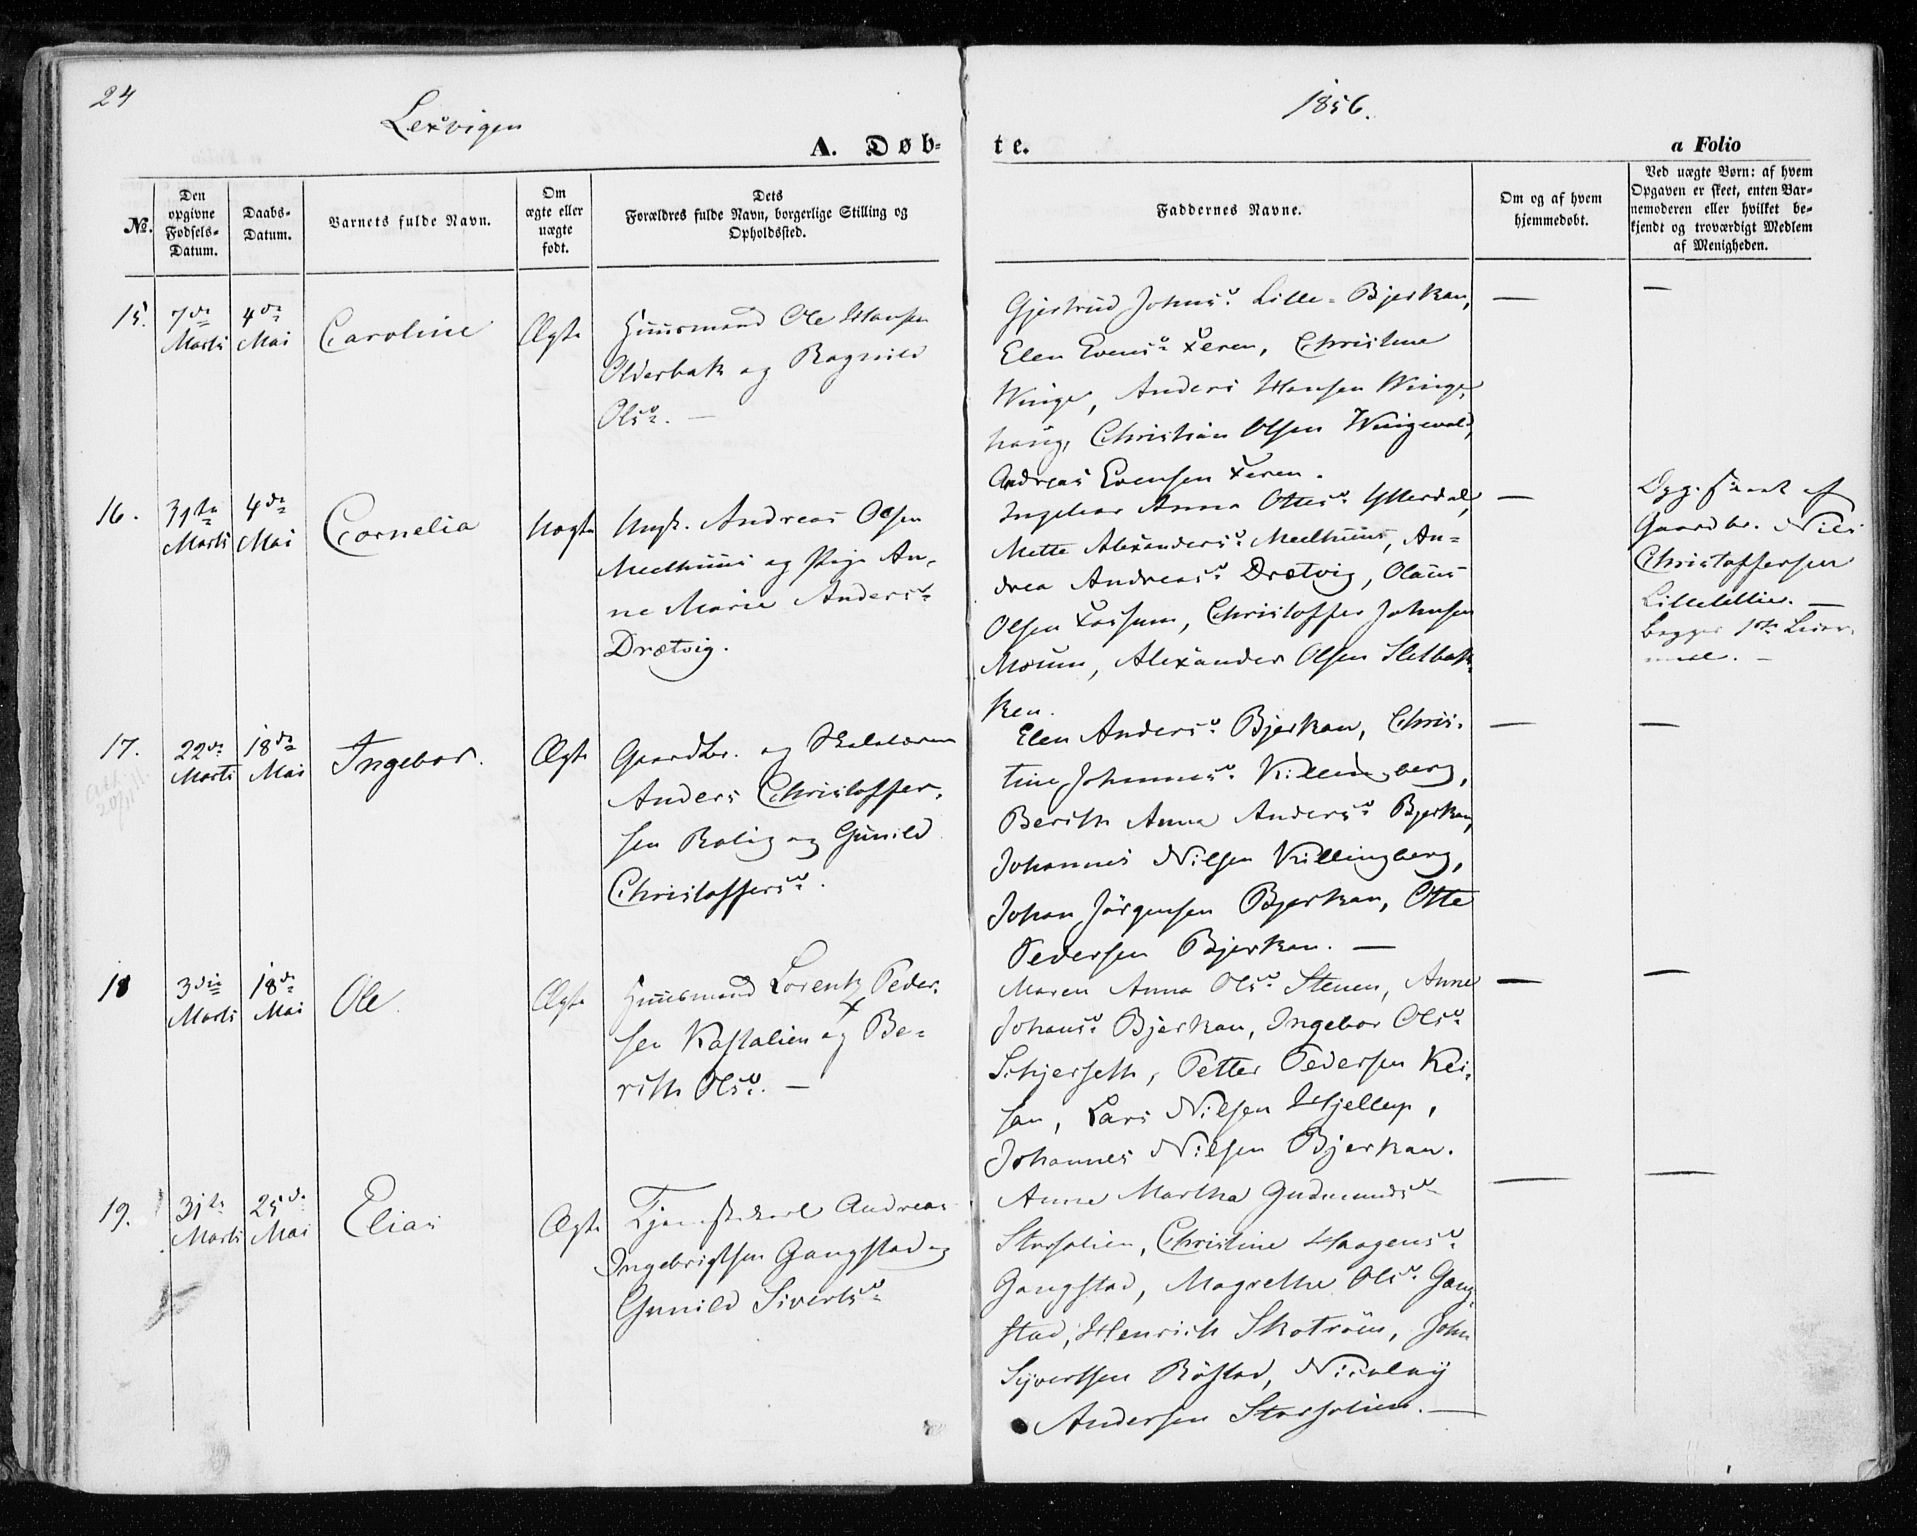 24
Lexvigen
1856.
A. Døb-
te.
a Folio
No.
Den opgivne Fødsels-Datum.
Daabs-Datum.
Barnets fulde Navn.
Om ægte eller uægte født.
Dets Forældres fulde Navn, borgerlige Stilling og Opholdssted.
Faddernes Navne.
Om og af hvem hjemmedøbt.
Ved uægte Børn: af hvem Opgaven er skeet, enten Barnemoderen eller hvilket bekjendt og troværdigt Medlem af Menigheden.
15.
7de Marti
4de Mai
Caroline
Ægte
Huusmand Ole Hansen
Olderbak og Ragnild
Olsd. —
Gjertrud Johnsd. Lille-Bjerkan,
Elen Evensd. Xeren, Christine
Winge, Anders Hansen Winge,
haug, Christian Olsen Wingevald,
Andreas Evensen Xeren.
—
—
16.
31te Marti
4de Mai
Cornelia
Uægte
Ungk. Andreas Olsen
Meelhuus og Pige An-
ne Marie Andersd.
Drætvig.
Ingebor Anna Ottesd. Ytterdal,
Mette Alexandersd. Meelhuus, An-
drea Andreasd. Drætvig, Olaus
Olsen Fossum, Christoffer Johnsen
Moum, Alexander Olsen Sletbak-
ken.
—
Opg. skeet af
Gaardbr. Niels
Christoffersen
Lilletellier. —
begges 1ste Leier-
maal. —
17.
22de Marti
18de Mai
Ingebor.
Ægte
Gaardbr. og Skolelærer
Anders Christoffer-
sen Rolig og Gunild
Christoffersd.
Elen Andersd. Bjerkan, Chris-
tine Johannesd. Killingberg,
Berith Anna Andersd. Bjerkan,
Johannes Nilsen Killingberg,
Johan Jörgensen Bjerkan, Otte
Pedersen Bjerkan. —
—
—
18
3die Marti
18de Mai
Ole.
Ægte
Huusmand Lorentz Peder-
sen Kastalien og Be-
rith Olsd. —
Maren Anna Olsd. Stenen, Anne
Johansd. Bjerkan, Ingebor Olsd.
Schjerseth, Petter Pedersen Rei-
san, Lars Nilsen Hjellup,
Johannes Nilsen Bjerkan.
—
—
19.
31te Marti
25de Mai
Elias
Ægte
Tjenestekarl Andreas
Ingebrigtsen Gangstad og
Gunild Sivertsd.
Anne Martha Gudmundsd.
Storsalien, Christine Haagensd.
Gangstad, Magrethe Olsd. Gang-
stad, Henrich Skotröen, John
Syvertsen Röstad, Nicolay
Andersen Storsalien. —
—
—